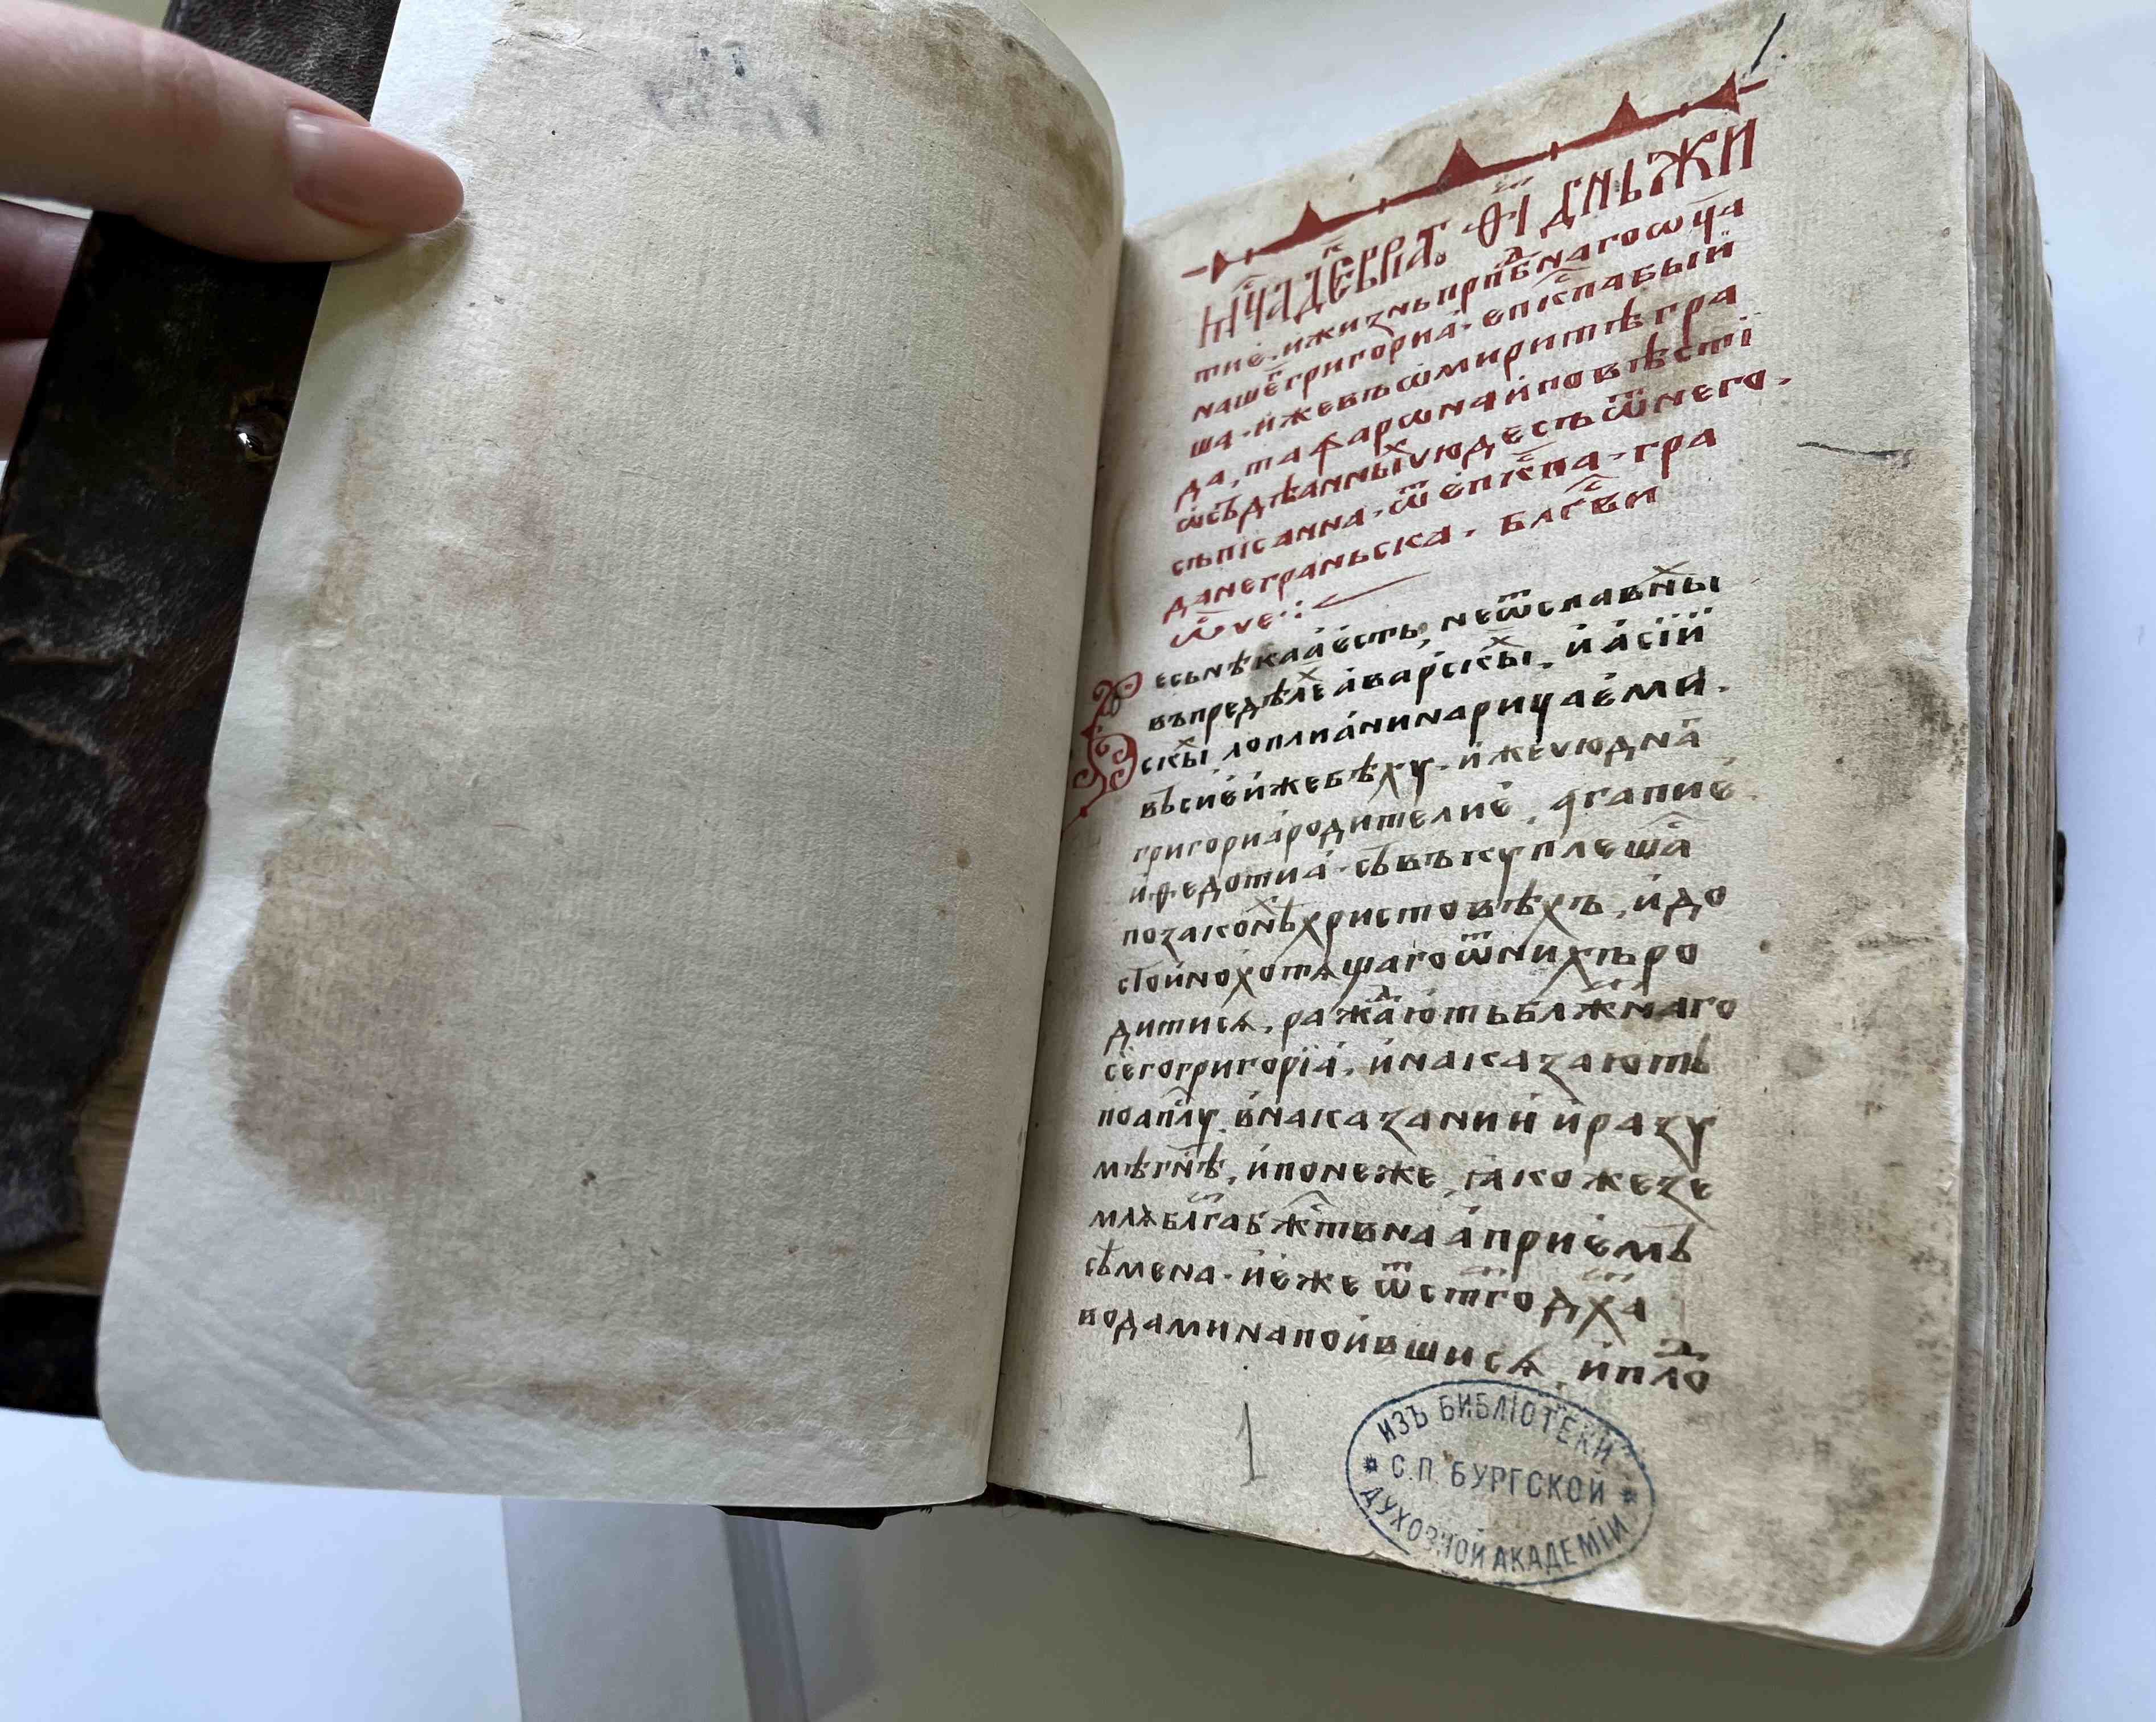 мⷭ҇ца декⷡ҇рїа. ѳ҃і дн҃ь жи
тиѐ. и жизнь прпⷣбнаго ѡц҃а
нашеⷢ҇ григориа̀. епⷭ҇кпа бы́й
ша. и́же въ ѡмиритѣ гра
да, та фарѡна и́ повѣсті
ѡ съдѣанныⷯ чюдесъ ѿ него.
съпісанна. ѿ е́пⷭ҇кпа. гра
да неграньска. блⷭ҇ви
ѿче:·
есь нѣкаа̀ е́сть, не ѿ славныⷯ
въ предѣлеⷯ а́варскыⷯ. и́ а́сїй
скыⷯ лоплиа́ни нарицае́ми.
въ сиѐй же бѣху. и́же чюдна
григориа́ родителиѐ, агапиѐ
и́ федотиа̀. съвъкуплеша
по законѣⷯ христовѣхъ, и́ до
стойно хотѧщаго ѿ нихъ ро
дитисѧ. ражⷣають блаⷤ҇ннаго
сего григорїа̀. и́ наказають
по апⷭ҇лу. в наказании́ и́ разу
мѣ гн҃ѣ, и́ понеже, ꙗ́коже зе
млѧ бл҃га бжⷭ҇твьнаа̀ прие́мъ
сѣмена. и́ѐже ѿ ст҃го дх҃а
водами напои́вшисѧ, и́ плⷪ҇
1
ИЗЪ БИБЛІОТЕКИ
С.П. БУРГСКОЙ
ДУХОВНОЙ АКАДЕМІИ